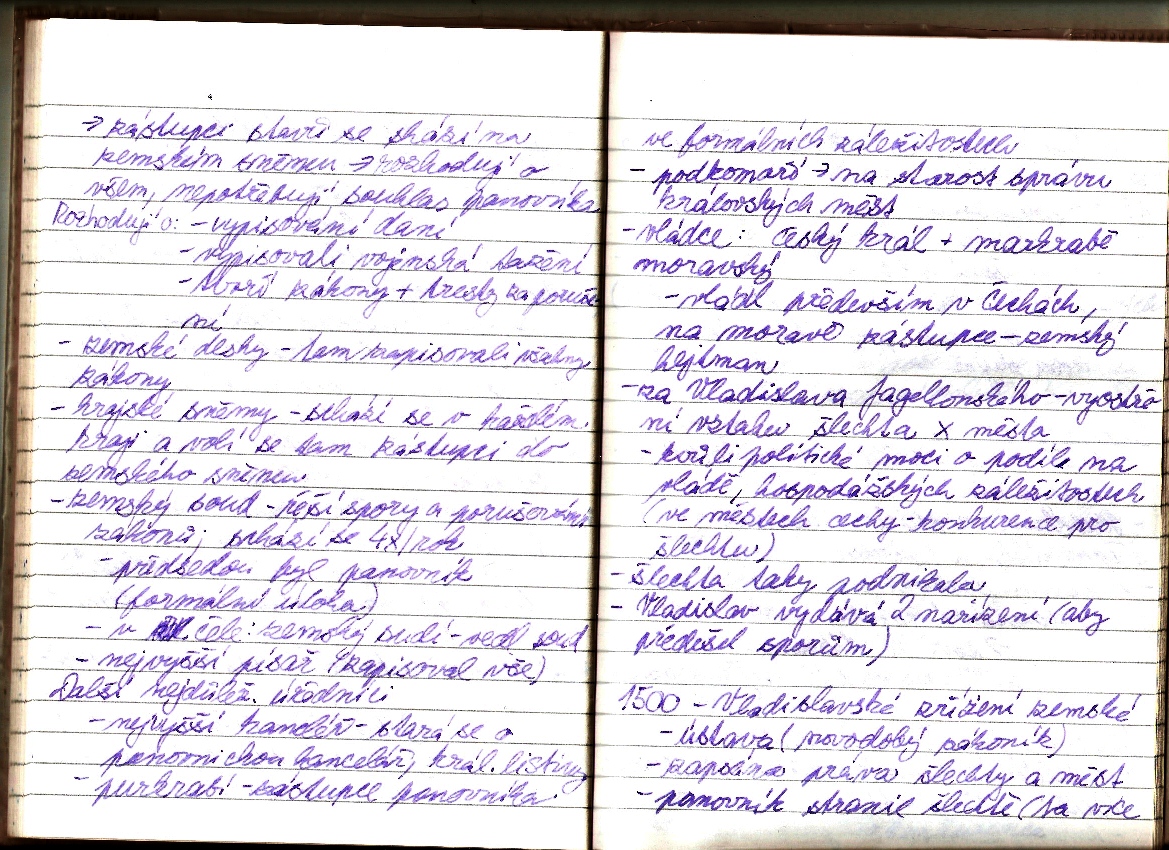 → zástupci stavů se schází na
zemském sněmu → rozhodují o
všem, nepotřebují souhlas panovníka
Rozhodují o: - vypisování daní
- vypisovali vojenská tažení
- tvoří zákony + tresty za poruše
ní
- zemské desky - tam zapisovali všechny
zákony
- krajské sněmy - schází se v každém
kraji a volí se tam zástupci do
zemského sněmu
- zemský soud - řeší spory a porušování
zákonů, schází se 4x/rok
- předsedou byl panovník
(formální úloha)
- v čele: zemský sudí - vedl soud
- nejvyšší písař (zapisoval vše)
Další nejdůlež. úředníci
- nejvyšší kancléř - stará se o
panovnickou kancelář, král. listiny
- purkrabí - zástupce panovníka
ve formálních záležitostech
- podkomoří → na starost správu
královských měst
- vládce: český král + markrabě
moravský
- vládl především v Čechách,
na moravě zástupce - zemský
hejtman
- za Vladislava Jagellonského - vyostře
ní vztahu šlechta x města
- kvůli politické moci o podílu na
vládě, hospodářských záležitostech
(ve městech cechy - konkurence pro
šlechtu)
- šlechta taky podnikala
- Vladislav vydává 2 nařízení (aby
předešel sporům)
1500 - Vladislavské zřízení zemské
- ústava (novodobý zákoník)
- zapsána práva šlechty a měst
- panovník stranil šlechtě (ta více